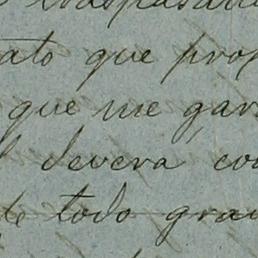 ato que prop
que me gar
devera co
de todo gra